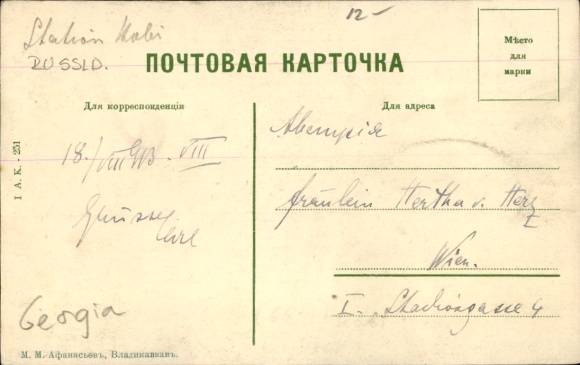 12-
Station Kobi
RUSSLD.
ПОЧТОВАЯ КАРТОЧКА
Мѣсто
для
марки
Для корреспонденціи
Для адреса
I A. K. - 251
18./VIII 913. VIII
Grüsse
Австрія
Fräulein Hertha v. Herz
Wien.
I. Stadiongasse 4
Georgia
М. М. Афанасьевъ, Владикавказъ.